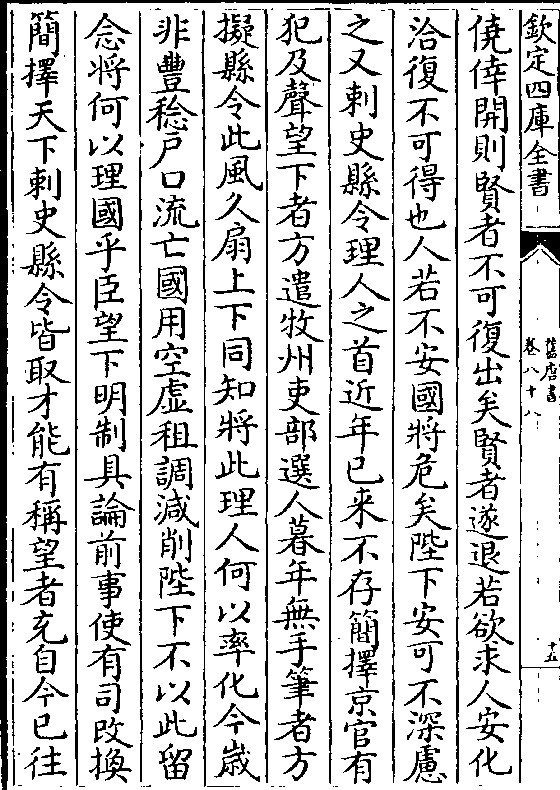 欽定四庫全書
舊唐書
卷八十八
十五
僥倖開則賢者不可復出矣賢者遂退若欲求人安化
洽復不可得也人若不安國將危矣陛下安可不深慮
之又刺史縣令理人之首近年已來不存簡擇京官有
犯及聲望下者方遣牧州吏部選人暮年無手筆者方
擬縣令此風久扇上下同知將此理人何以率化今歲
非豐稔戶口流亡國用空虛租調減削陛下不以此留
念將何以理國乎臣望下明制具論前事使有司改換
簡擇天下刺史縣令皆取才能有稱望者充自今已往